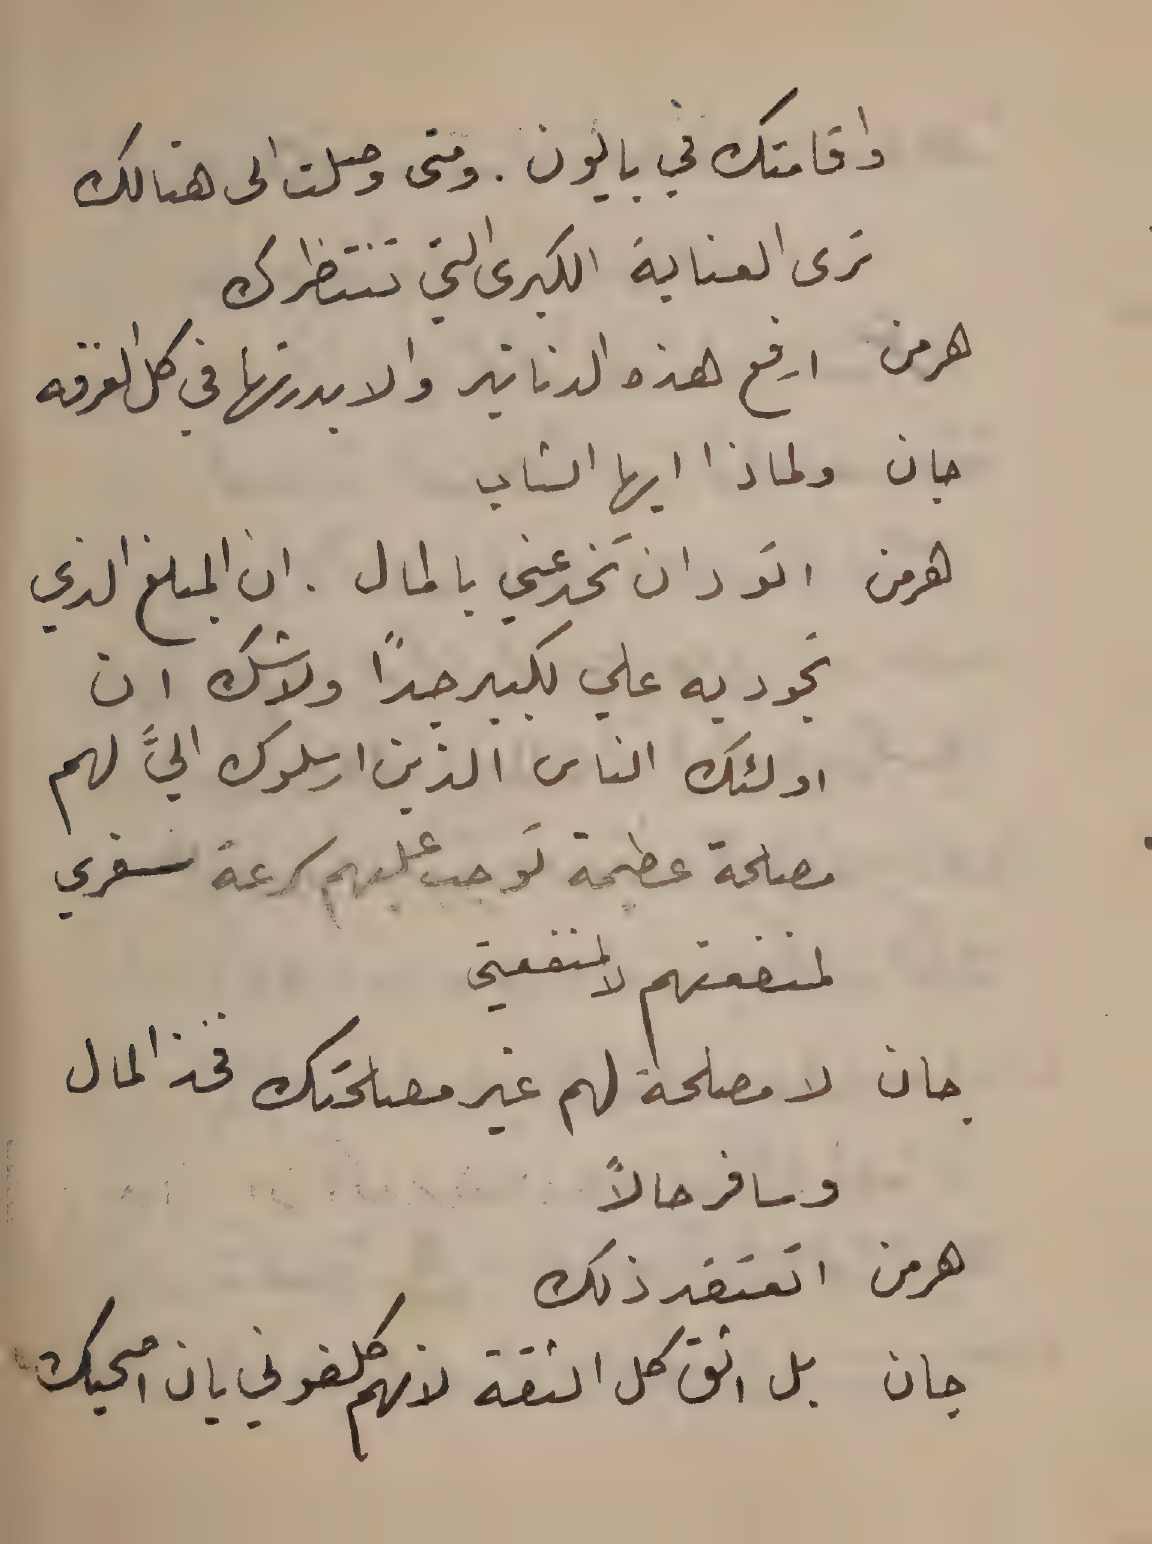 واقامتك في بايون . ومتى وصلت الى هنالك
ترى العناية الكبرى التي تنتظرك
هرمن ارفع هذه الدنانير والا بدرتها في كل الغرفه
جان ولماذا ايها الشاب
هرمن اتود ان تخدعني بالمال . ان المبلغ الذي
تجود به علي لكبير جدًا ولاشك ان
اولئك الناس الذين ارسلوك اليَّ لهم
مصلحة عظيمة توجب عليهم سرعة سفري
لمنفعتهم لا لمنفعتي
جان لا مصلحة لهم غير مصلحتك فخذ المال
وسافر حالاً
هرمن اتعتقد ذلك
جان بل اثق كل الثقة لانهم كلفوني بان اصحبك